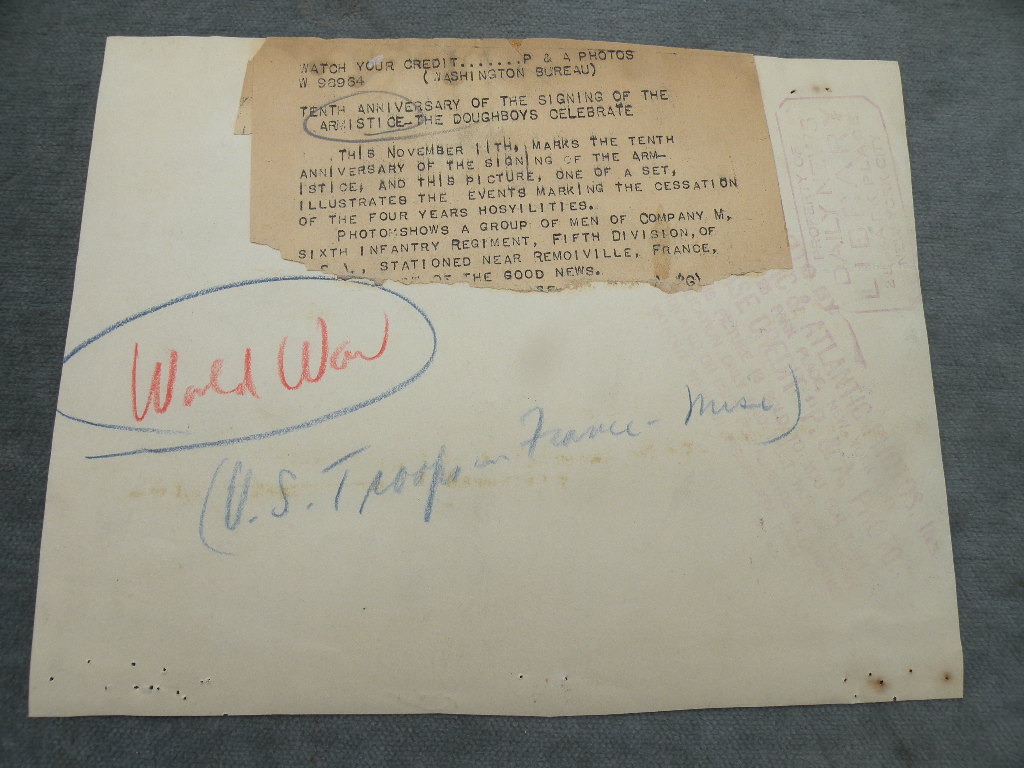 WATCH YOUR CREDIT.......P & A PHOTOS
W 98964 (WASHINGTON BUREAU)
TENTH ANNIVERSARY OF THE SIGNING OF THE
ARMISTICE-THE DOUGHBOYS CELEBRATE
THIS NOVEMBER 11TH, MARKS THE TENTH
ANNIVERSARY OF THE SIGNING OF THE ARM-
ISTICE, AND THIS PICTURE, ONE OF A SET,
ILLUSTRATES THE EVENTS MARKING THE CESSATION
OF THE FOUR YEARS HOSYILITIES.
PHOTO SHOWS A GROUP OF MEN OF COMPANY M,
SIXTH INFANTRY REGIMENT, FIFTH DIVISION, OF
STATIONED NEAR REMOIVILLE, FRANCE,
OF THE GOOD NEWS.
PROPERTY OF
DAILY
LIBRARY
BY
& ATLANTIC
World War
(U.S. Troops in France - Misc)